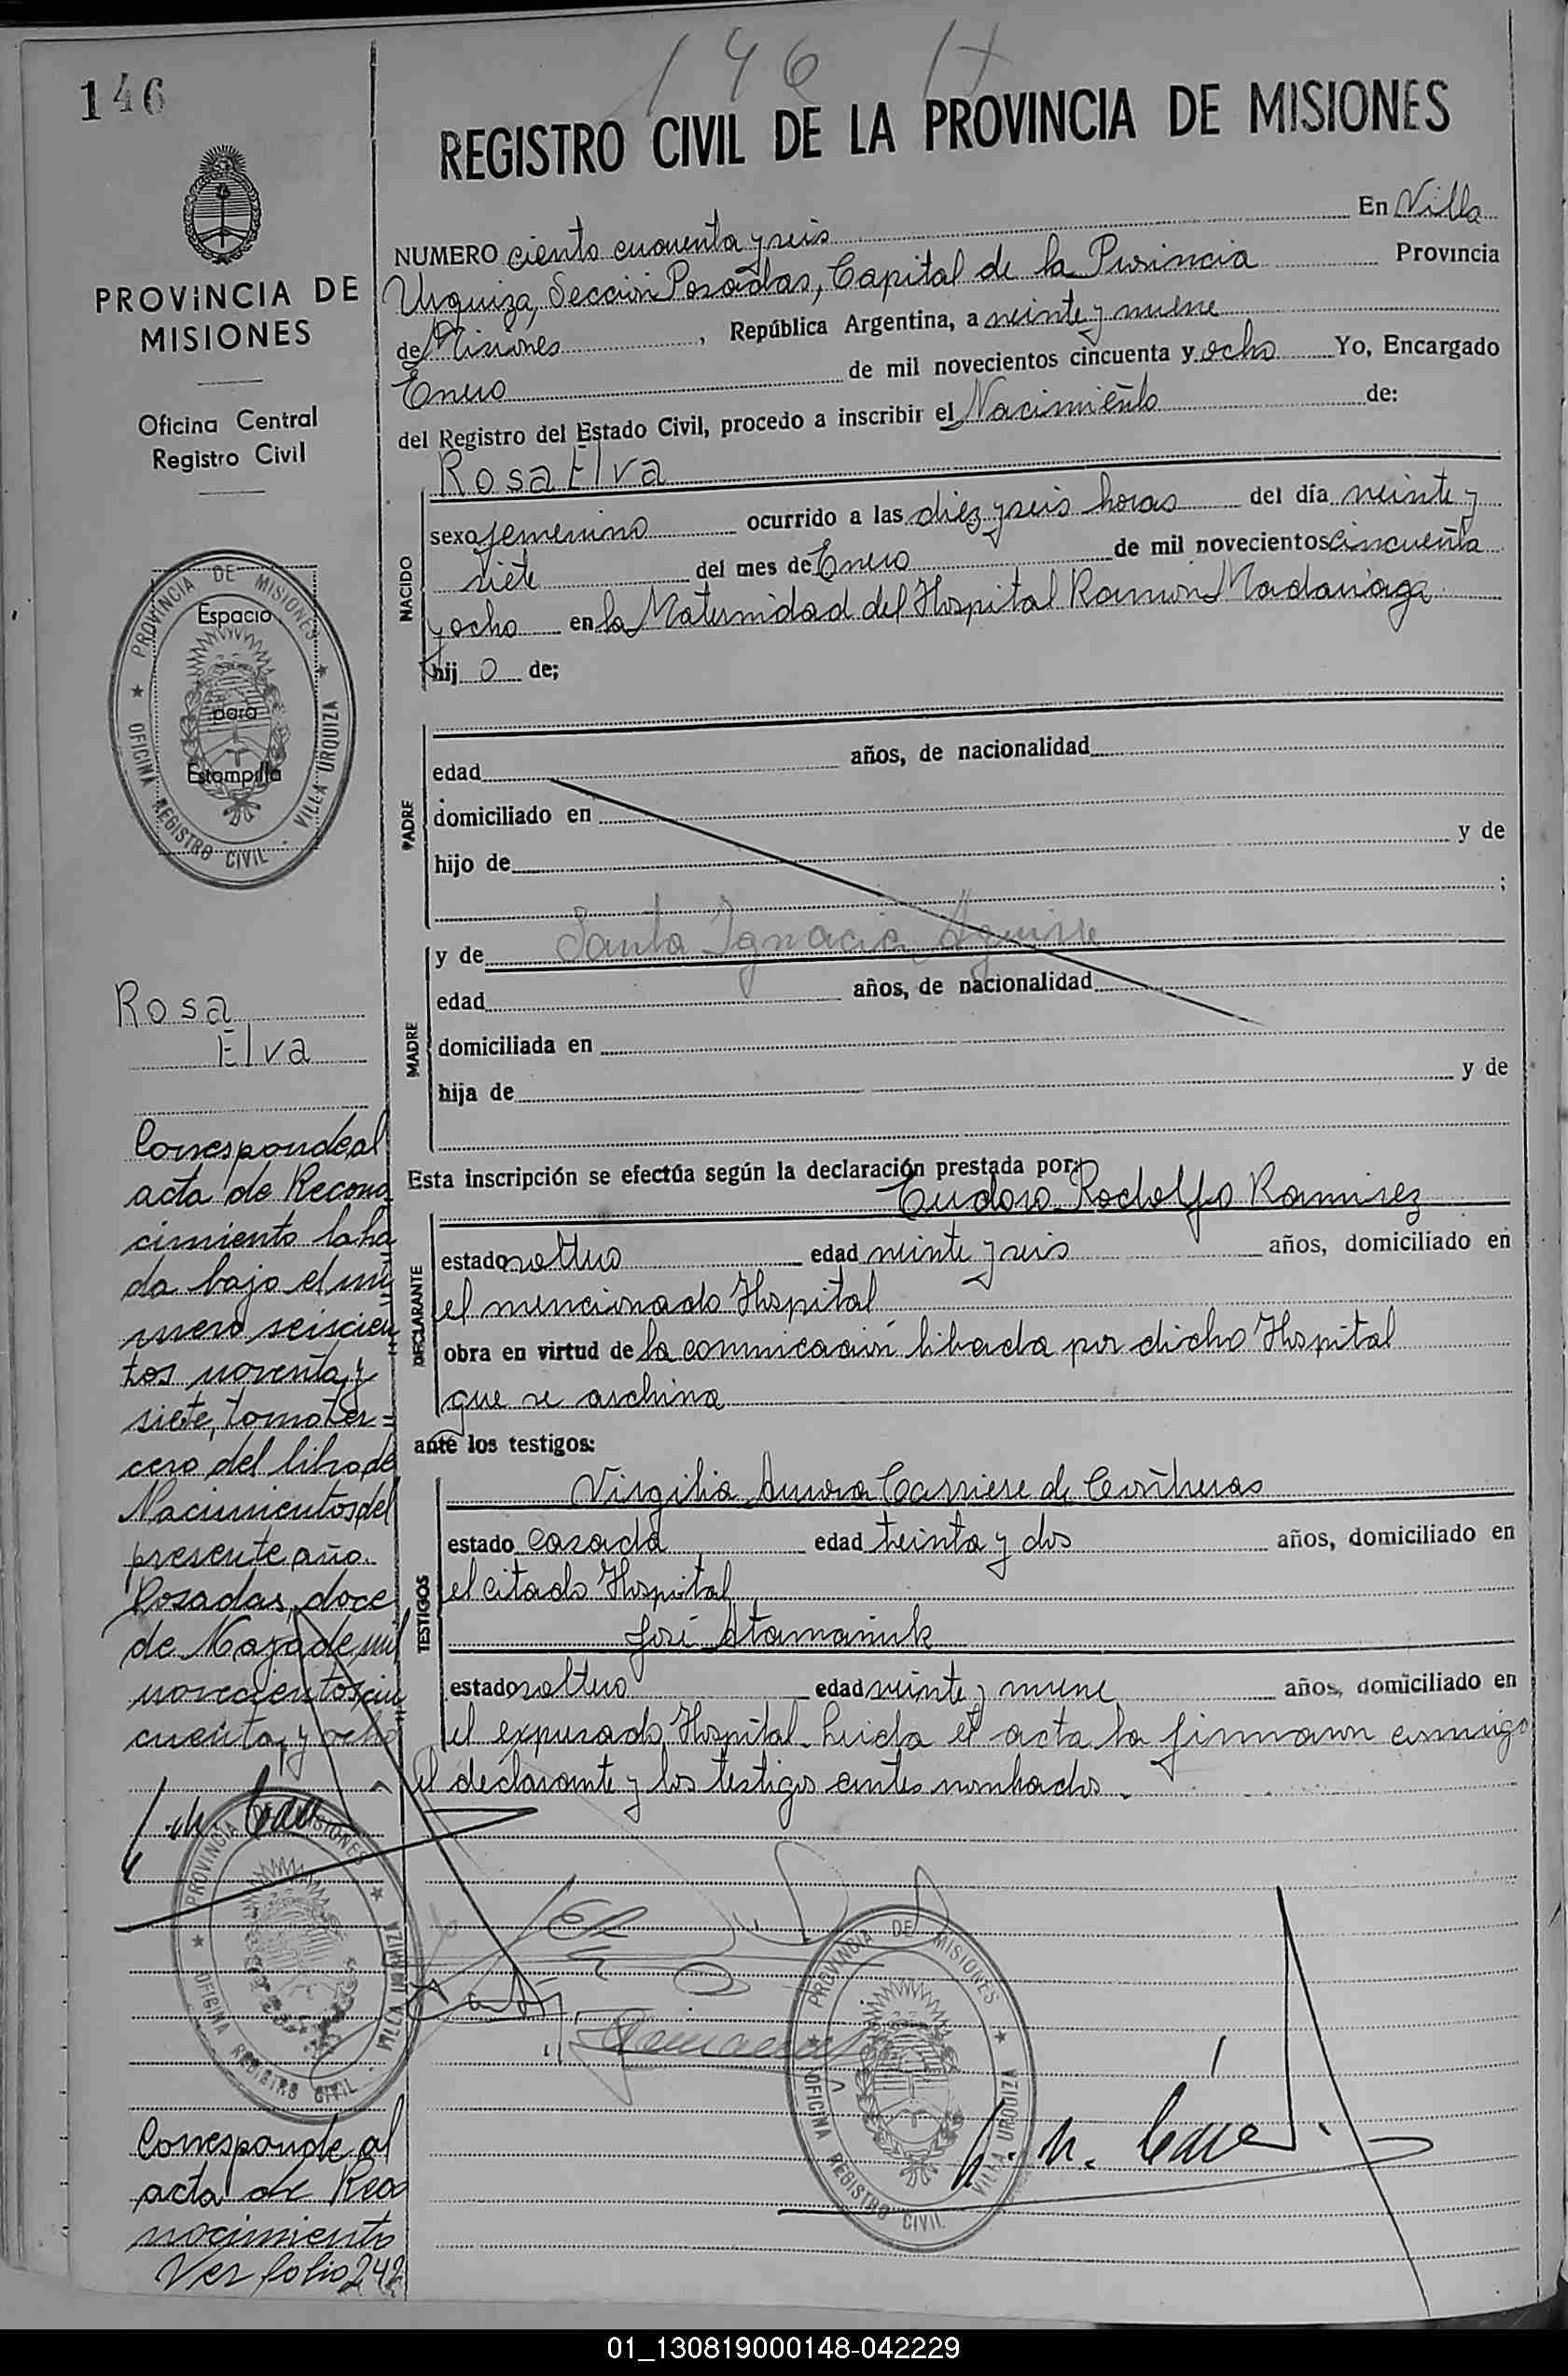 146 17
146
REGISTRO CIVIL DE LA PROVINCIA DE MISIONES
PROVINCIA DE
MISIONES
Oficina Central
Registro Civil
NUMERO ciento cuarenta y seis En Villa
Urquiza, Sección Posadas, Capital de la Provincia Provincia
de Misiones, República Argentina, a veinte y nueve
de Enero de mil novecientos cincuenta y ocho Yo, Encargado
del Registro del Estado Civil, procedo a inscribir el Nacimiento de:
NACIDO
Rosa Elva
sexo femenino ocurrido a las diez y seis horas del día veinte y
siete del mes de Enero de mil novecientos cincuenta
y ocho en la Maternidad del Hospital Ramón Madariaga
hij o de;
PROVINCIA DE MISIONES
OFICINA REGISTRO CIVIL - VILLA URQUIZA
Espacio
para
Estampilla
PADRE
edad años, de nacionalidad
domiciliado en
hijo de y de
;
MADRE
y de Santa Ignacia Aguirre
edad años, de nacionalidad
domiciliada en
hija de y de
Rosa
Elva
Corresponde al
acta de Recono
cimiento labra
da bajo el nú
mero seiscien
tos noventa y
siete, tomo ter=
cero del libro de
Nacimientos del
presente año.
Posadas, doce
de Mayo de mil
novecientos cin
cuenta y ocho
Esta inscripción se efectúa según la declaración prestada por:
DECLARANTE
Eudoro Rodolfo Ramirez
estado soltero edad veinte y seis años, domiciliado en
el mencionado Hospital
obra en virtud de la comunicación librada por dicho Hospital
que se archiva
ante los testigos:
TESTIGOS
Virgilia Aurora Carriere de Contreras
estado casada edad treinta y dos años, domiciliado en
el citado Hospital
José Atamaniuk
estado soltero edad veinte y nueve años, domiciliado en
el expresado Hospital. Leida el acta la firmaron conmigo
el declarante y los testigos antes nombrados.
PROVINCIA DE MISIONES
OFICINA REGISTRO CIVIL - VILLA URQUIZA
PROVINCIA DE MISIONES
OFICINA REGISTRO CIVIL VILLA URQUIZA
Corresponde al
acta de Reco
nocimiento
Ver folio 242
01_130819000148-042229